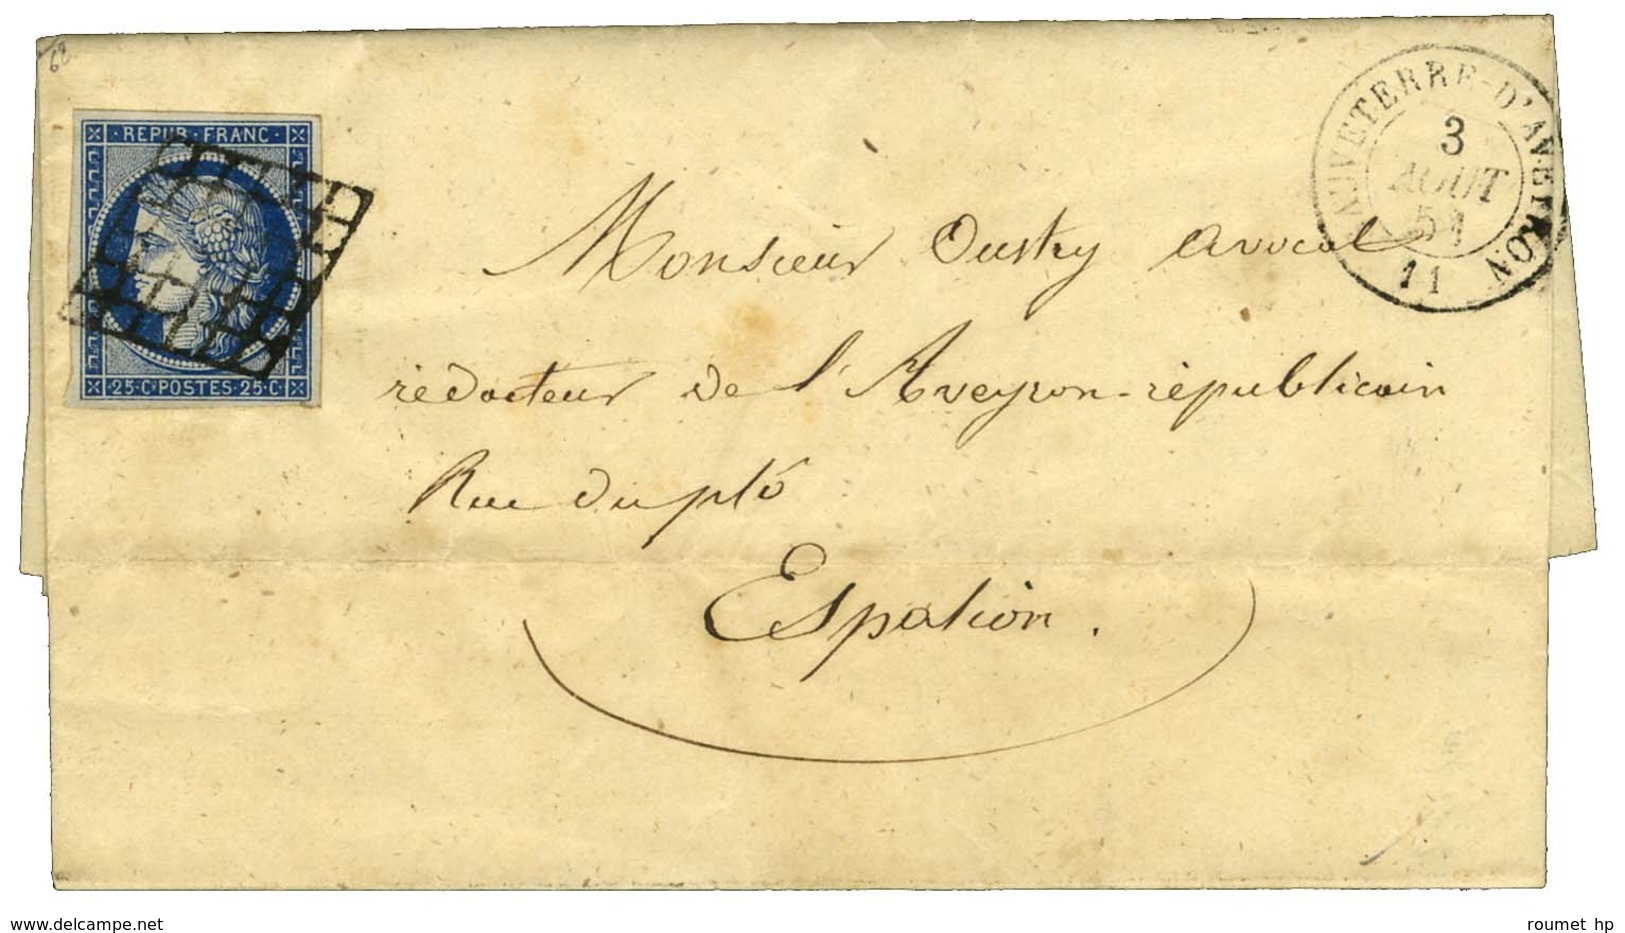 62
REPUB·FRANC·
25·C·POSTES·25·C
SAUVETERRE-D'AVEYRON
3
AOUT
51
11
Monsieur Oustry avocat
rédacteur de l'Aveyron-républicain
Rue
Espalion.
www.delcampe.net
roumet hp